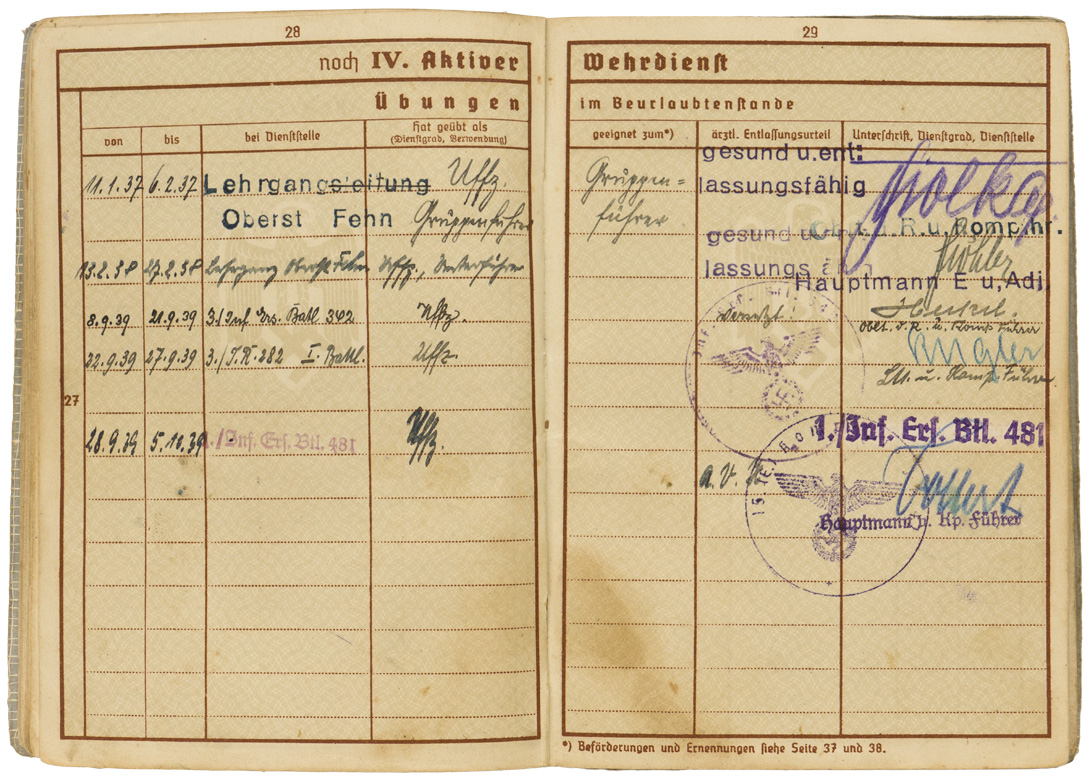 28
noch IV. Aktiver
Übungen
von
bis
bei Dienststelle
Hat geübt als
(Dienstgrad, Verwendung)
11.1.37 6.2.37 Lehrgangsleitung Uffz.
Oberst Fehn Gruppenführer
13.2.38 27.2.38 Lehrgang Oberst Fehn Uffz., Unterführer
8.9.39 21.9.39 3./Inf. Ers. Batl 342 Uffz.
22.9.39 27.9.39 3./I.R. 282 I. Battl. Uffz.
27
28.9.39 5.10.39 1./Inf. Ers. Btl. 481 Uffz.
29
Wehrdienst
im Beurlaubtenstande
geeignet zum*)
ärztl. Entlassungsurteil
Unterschrift, Dienstgrad, Dienststelle
Gruppen=
führer
gesund u. ent:
lassungsfähig
R. u. Komp.
gesund u.
lassungs
Hauptmann E u, Adj.
versetzt!
Oblt. d. R. u. Komp. Führer
Lt. u. Komp. Führer
1./Inf. Ers. Btl. 481
a. V.
Hauptmann u. Kp. Führer
*) Beförderungen und Ernennungen siehe Seite 37 und 38.